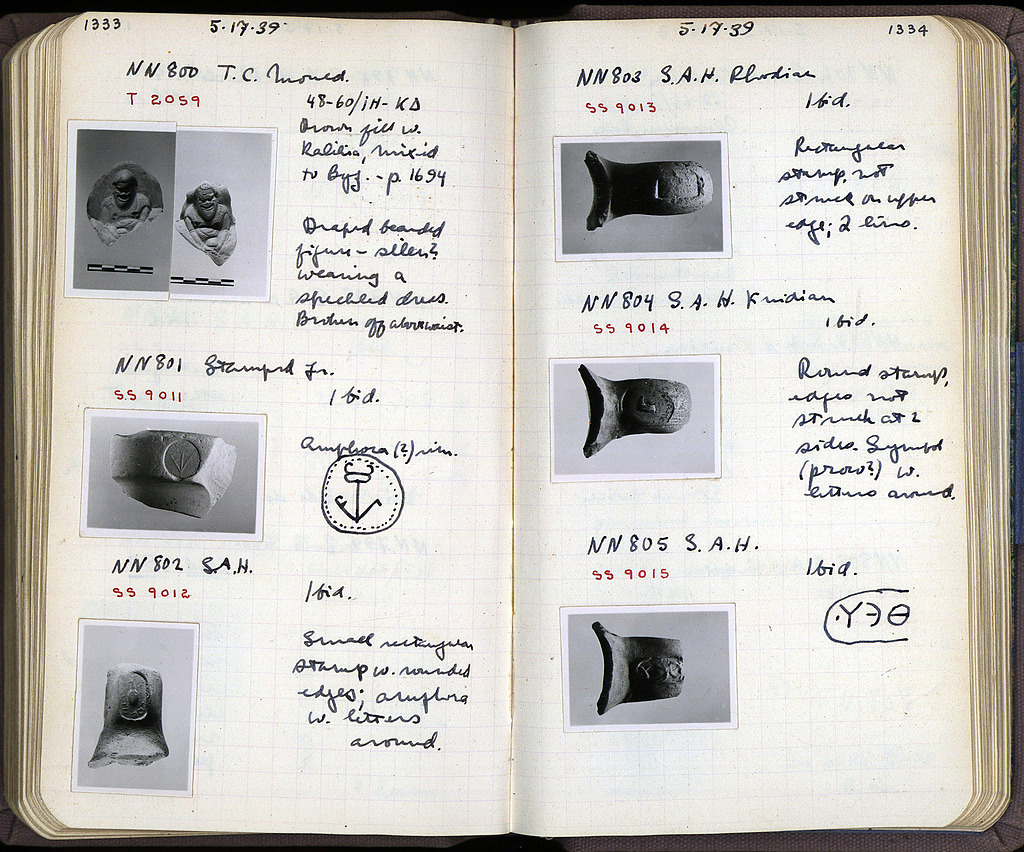 1333
5·17·39
NN800 T.C. Mould.
T 2059
48-60/ΙΗ-ΚΔ
Brown fill w.
mixed
to Byz. - p. 1694
Draped bearded
figure - silen?
wearing a
speckled dress.
Broken off above waist.
NN801 Stamped fr.
SS 9011
Ibid.
Amphora (?) rim.
NN802 S.A.H.
SS 9012
Ibid.
Small rectangular
stamp w. rounded
edges; amphora
w. letters
around.
5·17·39
1334
NN803 S.A.H. Rhodian
SS 9013
Ibid.
Rectangular
stamp, not
struck on upper
edge; 2 lines.
NN804 S.A.H. Knidian
SS 9014
Ibid.
Round stamp,
edges not
struck at 2
sides. Symbol
(prow?) w.
letters around.
NN805 S.A.H.
SS 9015
Ibid.
·ΥЭΘ